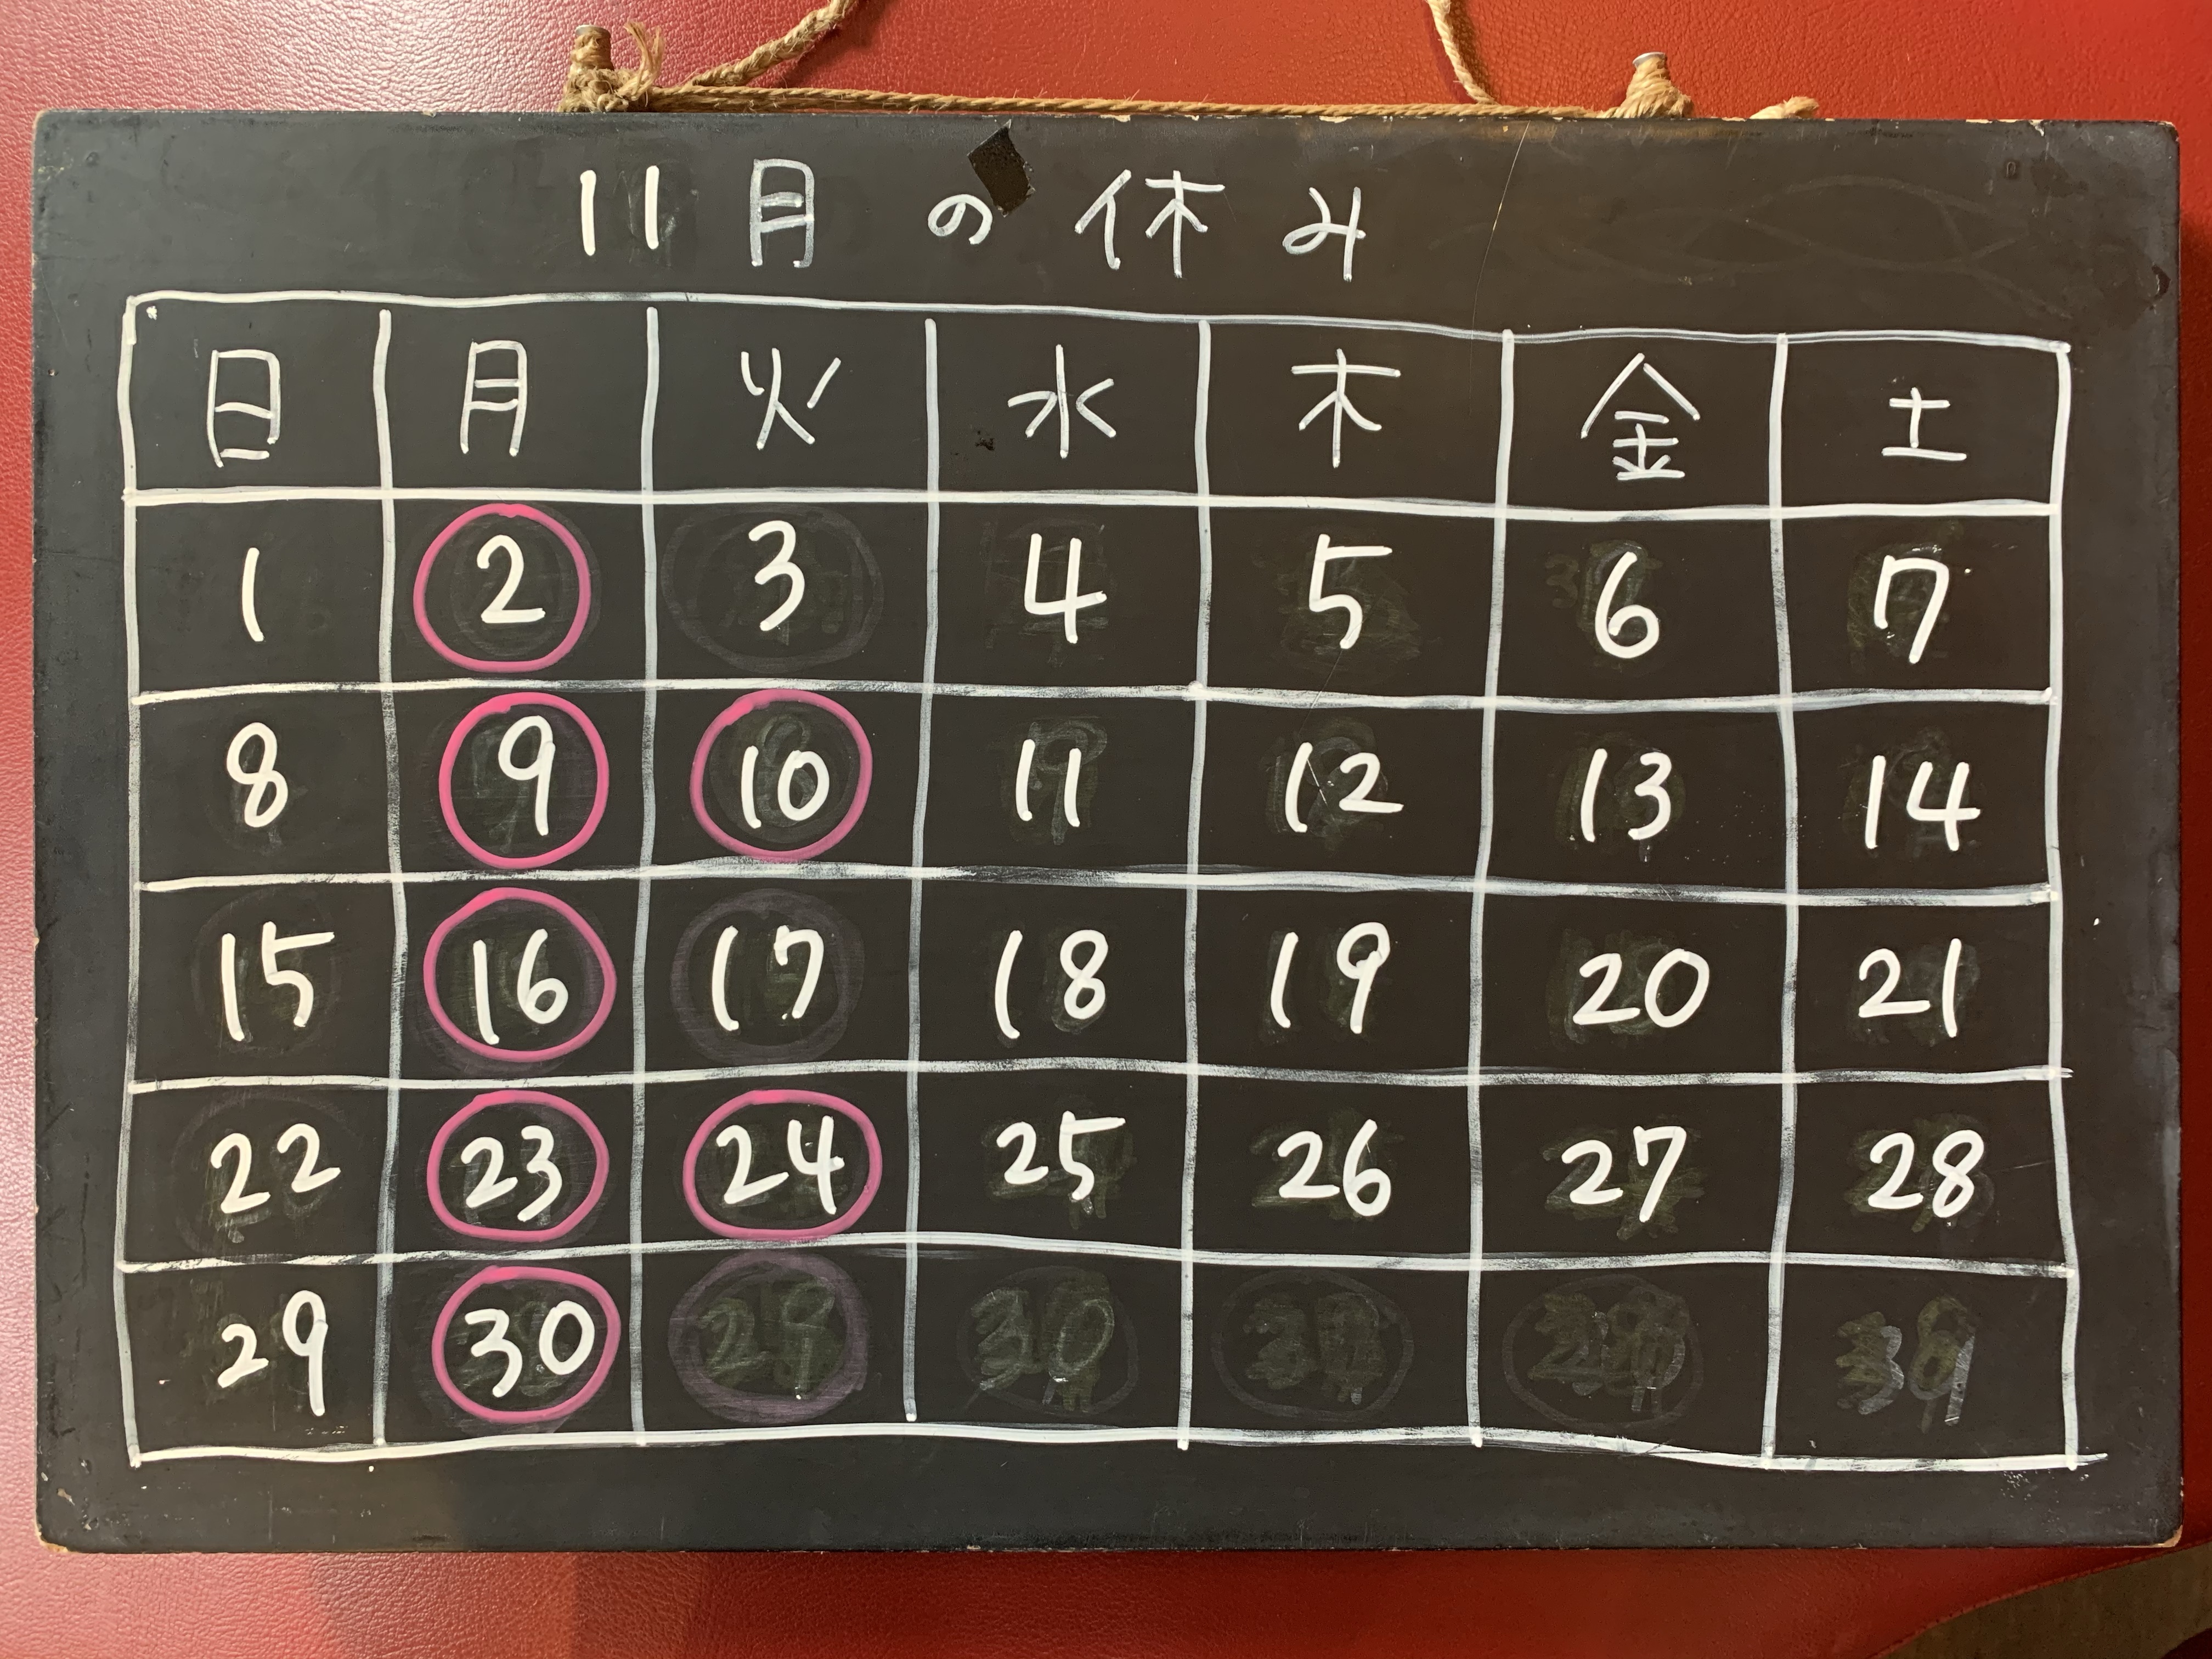 11月の休み
日 月 火 水 木 金 土
1 2 3 4 5 6 7
8 9 10 11 12 13 14
15 16 17 18 19 20 21
22 23 24 25 26 27 28
29 30